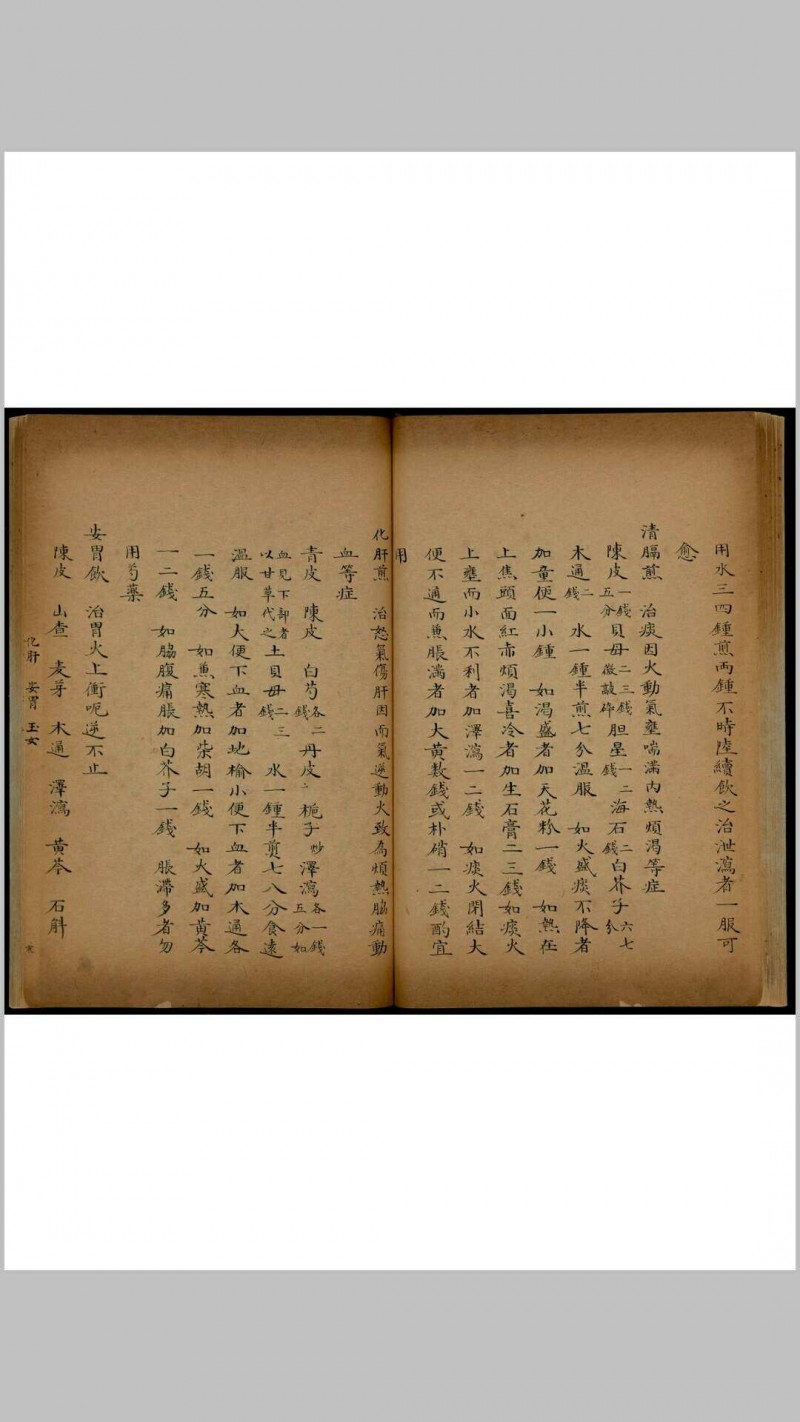 用水三四鍾煎両鍾不時陸續飲之治泄瀉者一服可
愈
清膈煎　治痰因火動氣壅喘滿內熱煩渴等症
陳皮一錢五分貝母二三錢微敲碎胆星一二錢海石二錢白芥子六七分
木通二錢　水一鍾半煎七分溫服　如火盛痰不降者
加童便一小鍾　如渴盛者加天花粉一錢　如熱在
上焦頭面紅赤煩渴喜冷者加生石膏二三錢如痰火
上壅而小水不利者加澤瀉一二錢　如痰火閉結大
便不通而兼脹滿者加大黃數錢或朴硝一二錢酌宜
用
化肝煎　治怒氣傷肝因而氣逆動火致為煩熱脇痛動
血等症
青皮　陳皮　白芍各二錢丹皮　梔子炒　澤瀉各一錢五分如
血見下部者以甘草代之土貝母二三錢　水一鍾半煎七八分食遠
溫服　如大便下血者加地榆小便下血者加木通各
一錢五分　如兼寒熱加柴胡一錢　如火盛加黃芩
一二錢　如脇腹痛脹加白芥子一錢　脹滯多者勿
用芍藥
安胃飲　治胃火上衝呃逆不止
陳皮　山查　麦芽　木通　澤瀉　黃芩　石斛
化肝　安胃　玉女